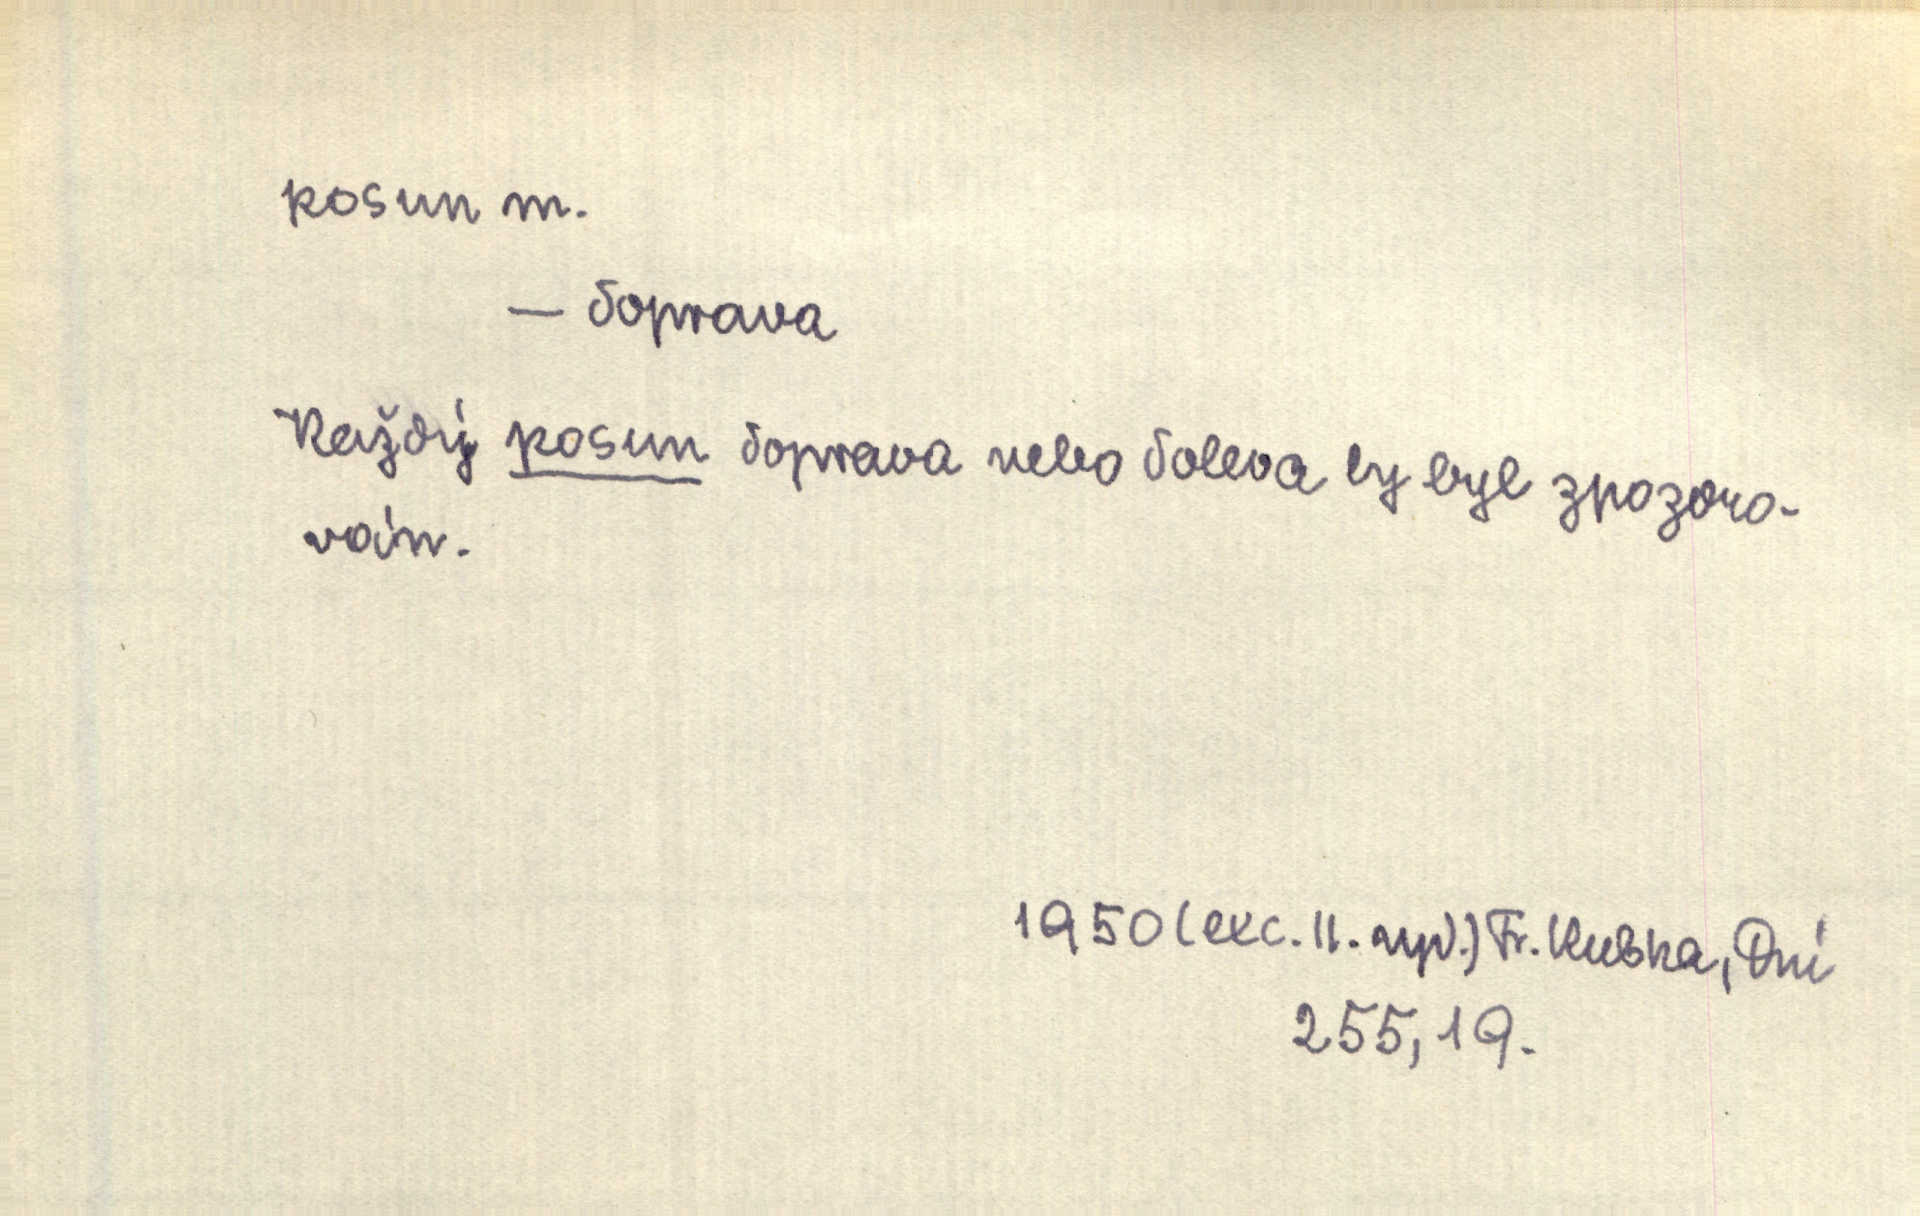 posun m.
— doprava
Každý posun doprava nebo doleva by byl zpozoro-
ván.
1950 (exc. II. vyd.) Fr. Kubka, Dni
255, 19.